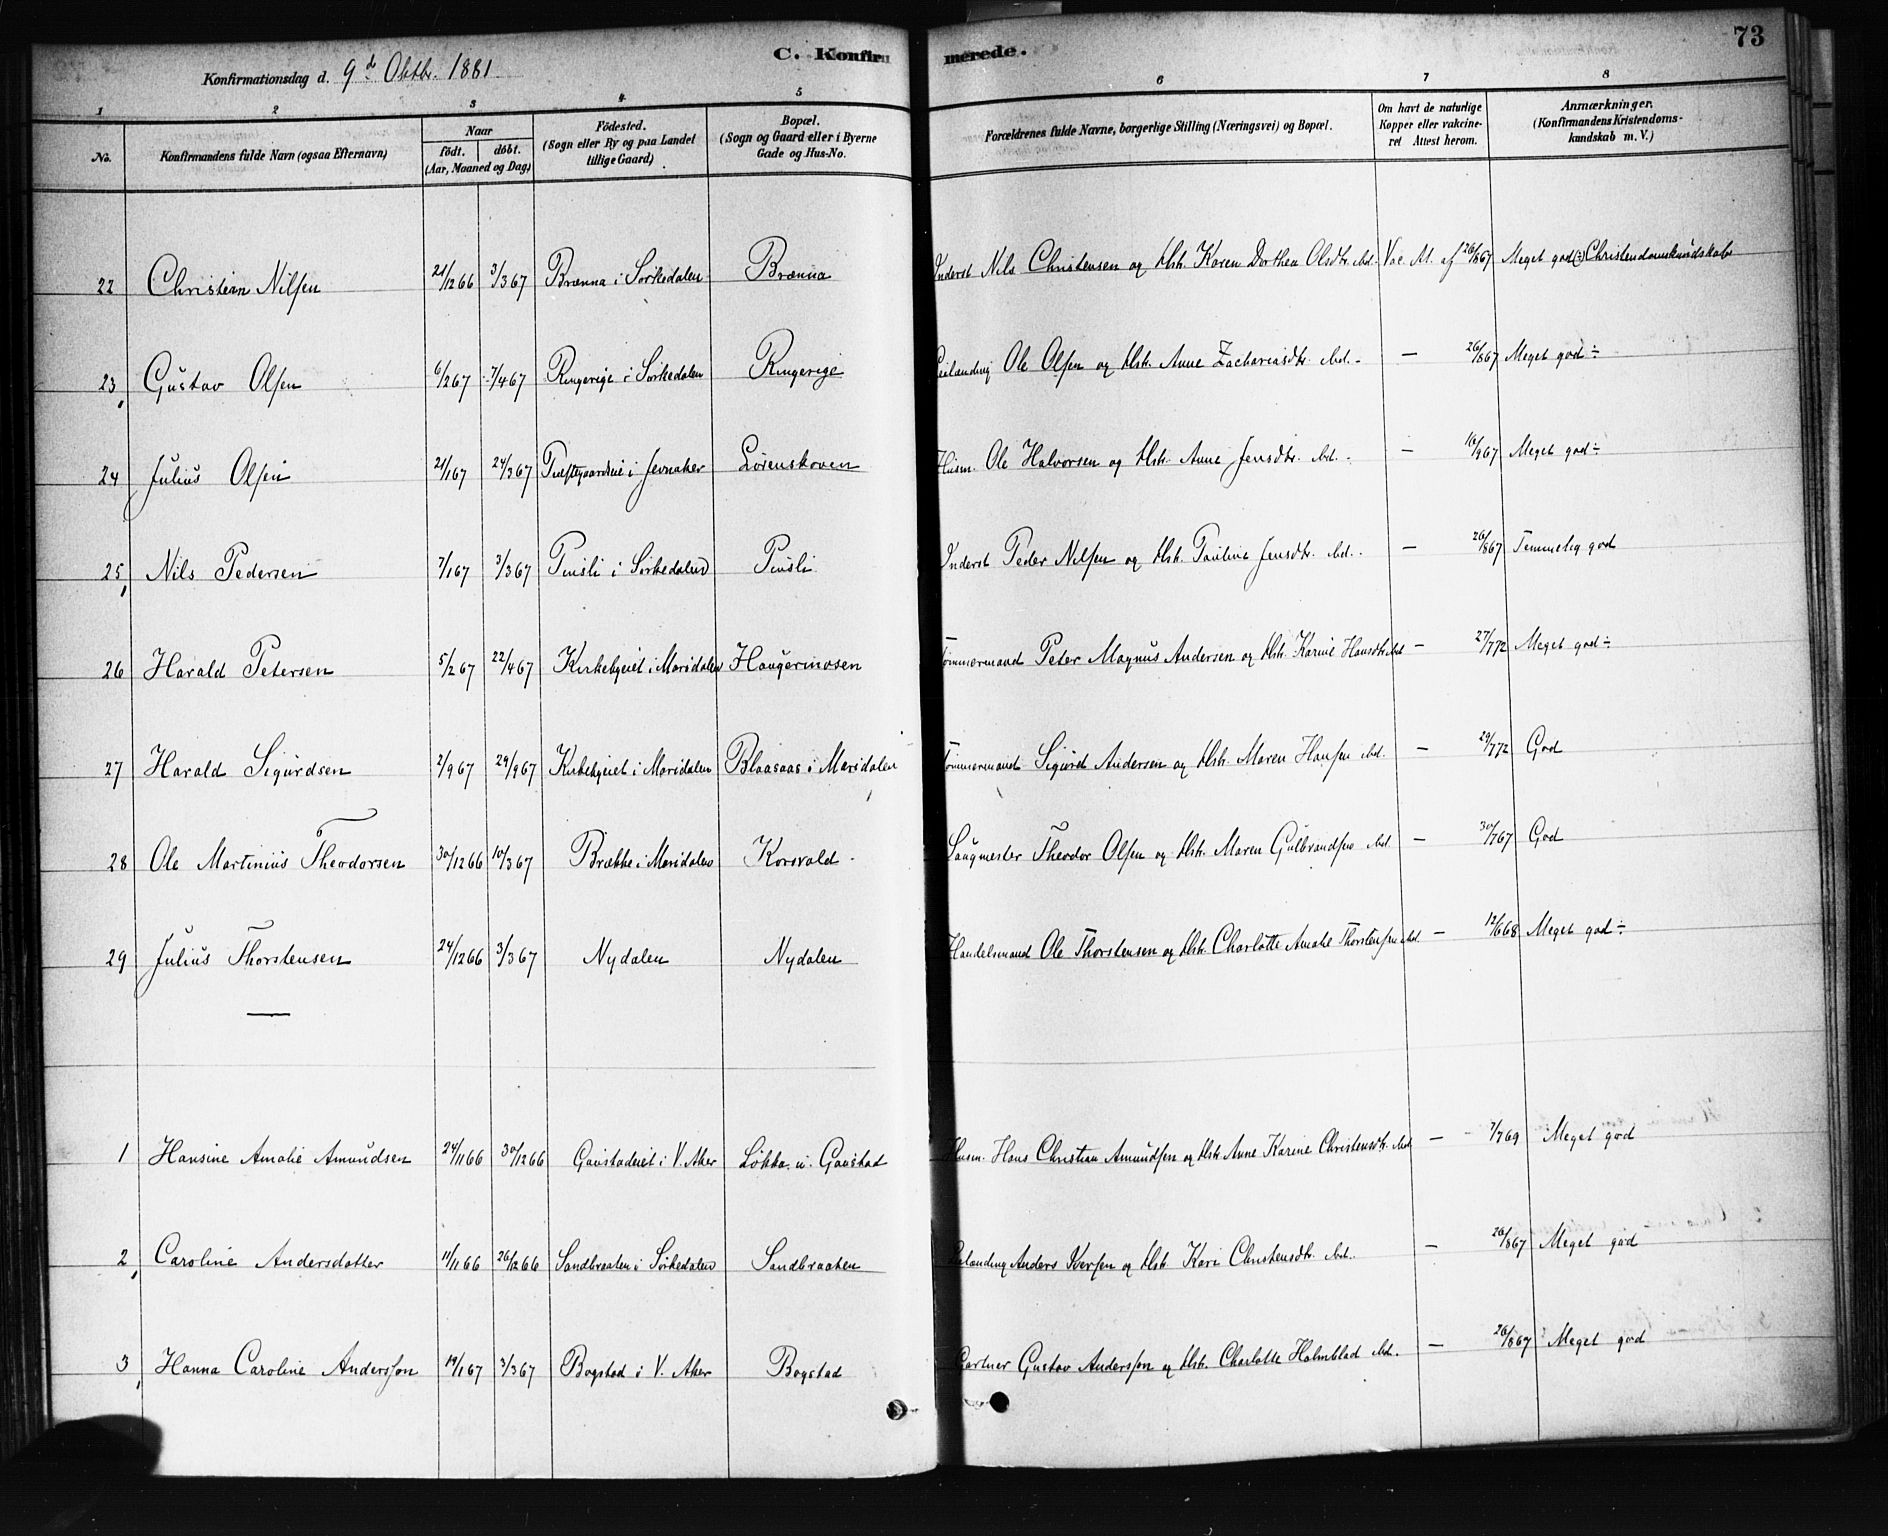 C. Konfirmerede.
73
Konfirmationsdag d. 9d Oktbr. 1881
1 2 3 4 5 6 7 8
No.
Konfirmandens fulde Navn (ogsaa Efternavn)
Naar
födt. döbt.
(Aar, Maaned og Dag)
Födested.
(Sogn eller By og paa Landet
tillige Gaard)
Bopæl.
(Sogn og Gaard eller i Byerne
Gade og Hus-No.
Forældrenes fulde Navne, borgerlige Stilling (Næringsvei) og Bopæl.
Om havt de naturlige
Kopper eller vakcine-
ret Attest herom.
Anmærkninger.
(Konfirmandens Kristendoms-
kundskab m. V.)
22 Christian Nilsen 21/12 66 3/3 67 Brænna i Sörkedalen Brænna Inderst Nils Christensen og Hstr. Karen Dorthea Olsdtr. ibd. Vac. At. af 26/8 67 Meget god Christendomskundskab
23 Gustav Olsen 6/2 67 7/4 67 Ringerige i Sörkedalen Ringerige Leilænding Ole Olsen og Hstr. Anne Zachariasdtr. ibd. — 26/8 67 Meget god
24 Julius Olsen 21/1 67 24/3 67 i Jevnaker Lörenskoven Husm. Ole Halvorsen og Hstr. Anne Jensdtr. ibd. — 16/9 67 Meget god
25 Nils Pedersen 7/1 67 3/3 67 Pinsli i Sörkedalen Pinsli Inderst Peder Nilsen og Hstr. Pauline Jensdtr. ibd. — 26/8 67 Temmelig god
26 Harald Petersen 5/2 67 22/4 67 Kirkebyeiet i Maridalen Haugermosen Tömmermand Peter Magnus Andersen og Hstr. Karine Hansdtr. ibd — 27/7 72 Meget god
27 Harald Sigurdsen 2/9 67 29/9 67 Kirkebyeiet i Maridalen Blaasaas i Maridalen Tömmermand Sigurd Andersen og Hstr. Maren Hansen ibd. — 29/7 72 God
28 Ole Martinius Theodorsen 30/12 66 10/3 67 Brække i Maridalen Korsvold Saugmester Theodor Olsen og Hstr. Maren Gulbrandsen ibd. — 30/7 67 God
29 Julius Thorstensen 24/12 66 3/3 67 Nydalen Nydalen Handelsmand Ole Thorstensen og Hstr. Charlotte Amalie Thorstensen ibd. — 12/6 68 Meget god
1 Hansine Amalie Amundsen 24/11 66 30/12 66 Gaustadeiet i V. Aker Lökka u. Gaustad Husm. Hans Christian Amundsen og Hstr. Anne Karine Christensdtr. ibd — 7/7 69 Meget god
2 Caroline Andersdatter 11/11 66 26/12 66 Sandbraaten i Sörkedalen Sandbraaten Leilænding Anders Iversen og Hstr. Kari Christensdtr. ibd. — 26/8 67 Meget god
3 Hanna Caroline Andersson 19/1 67 3/3 67 Bogstad i V. Aker Bogstad Gartner Gustav Andersson og Hstr. Charlotte Holmblad ibd. — 26/8 67 Meget god